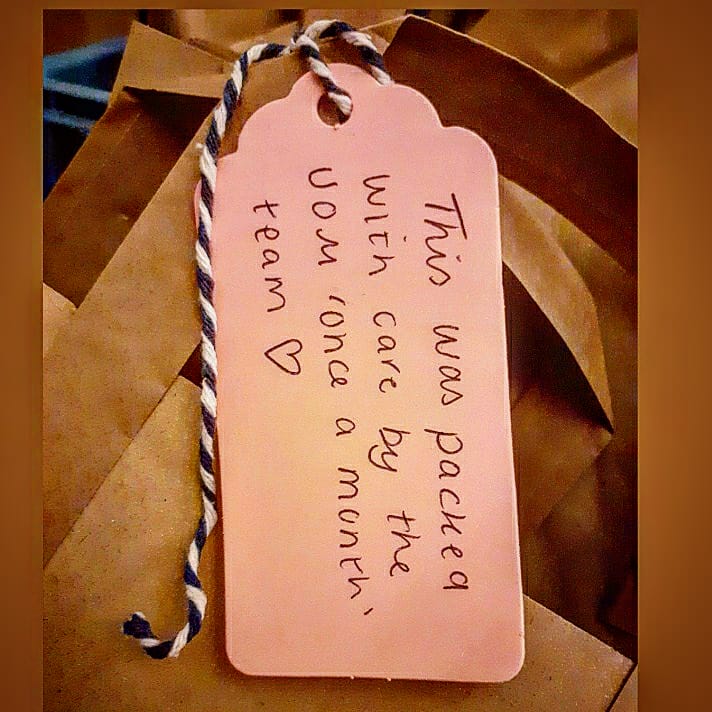 This was packed
with care by the
UoM 'once a month'
team ♡